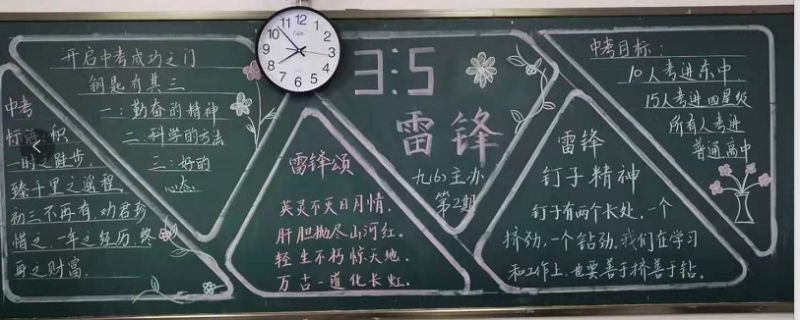 开启中考成功之门
钥匙有其三
一:勤奋的精神
二:科学的方法
三:好的
心态
中考
标
时之跬步,
臻千里之遥程,
初三不再有,劝君珍
惜之,一年之经历,终
身之财富.
12
1
2
3
4
5
6
7
8
9
10
11
3:5
雷锋
九(6)主办
第2期
雷锋颂
英灵不灭日月情,
肝胆抛尽山河红。
轻生不朽惊天地,
万古一道化长虹。
雷锋
钉子精神
钉子有两个长处,一个
挤劲,一个钻劲,我们在学习
和工作上,也要善于挤善于钻。
中考目标:
10人考进东中
15人考进四星级
所有人考进
普通高中